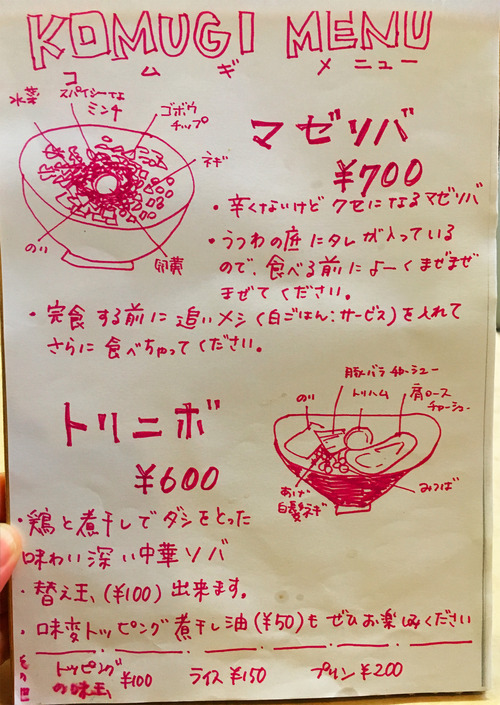 KOMUGI MENU
コムギ メニュー
水菜
スパイシーな
ミンチ
ゴボウ
チップ
ネギ
のり
卵黄
マゼソバ
¥700
・辛くないけど クセになるマゼソバ
・うつわの底にタレが入っている
ので、食べる前によーくまぜまぜ
まぜてください。
・完食する前に追いメシ(白ごはん:サービス)を入れて
さらに食べちゃってください。
トリニボ
¥600
豚バラチャーシュー
のり
トリハム
肩ロース
チャーシュー
あげ
白髪ネギ
みつば
・鶏と煮干しでダシをとった
味わい深い中華ソバ
・替え玉、(¥100)出来ます。
・味変トッピング煮干し油(¥50)もぜひお楽しみください
その他
トッピング
の味玉 ¥100
ライス ¥150
プリン ¥200